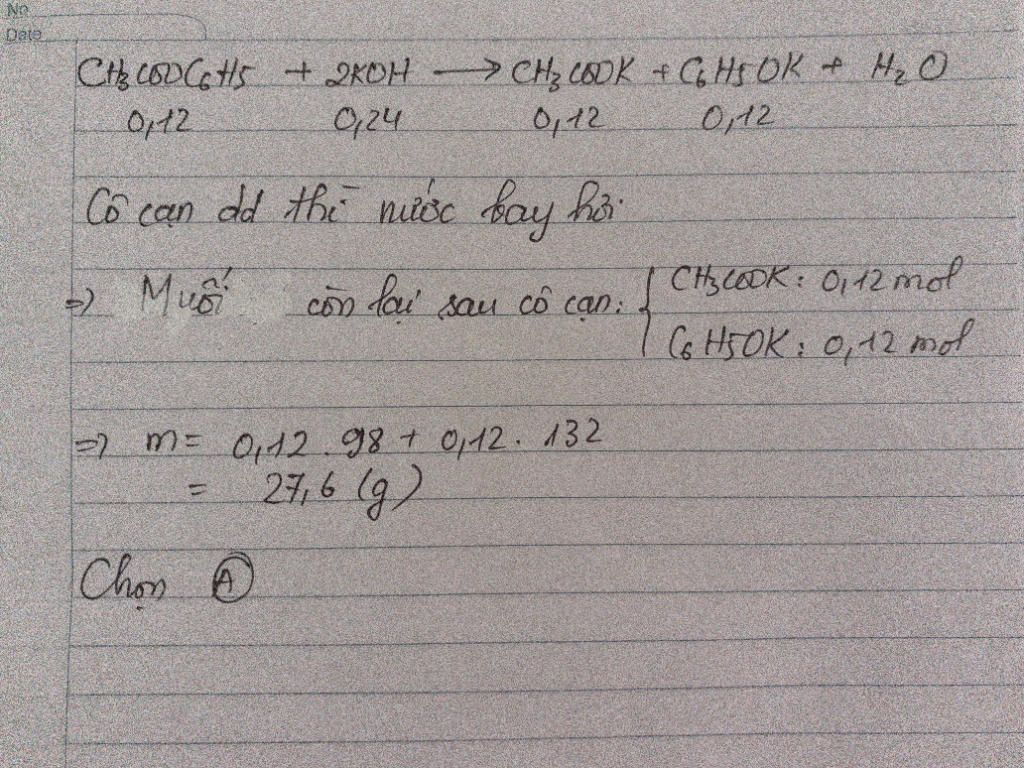 No
Date
CH3COOC6H5 + 2KOH → CH3COOK + C6H5OK + H2O
0,12 0,24 0,12 0,12
Cô cạn dd thì nước bay hơi.
=> Muối còn lại sau cô cạn: { CH3COOK: 0,12 mol
C6H5OK: 0,12 mol
=> m = 0,12 . 98 + 0,12 . 132
= 27,6 (g)
Chọn A